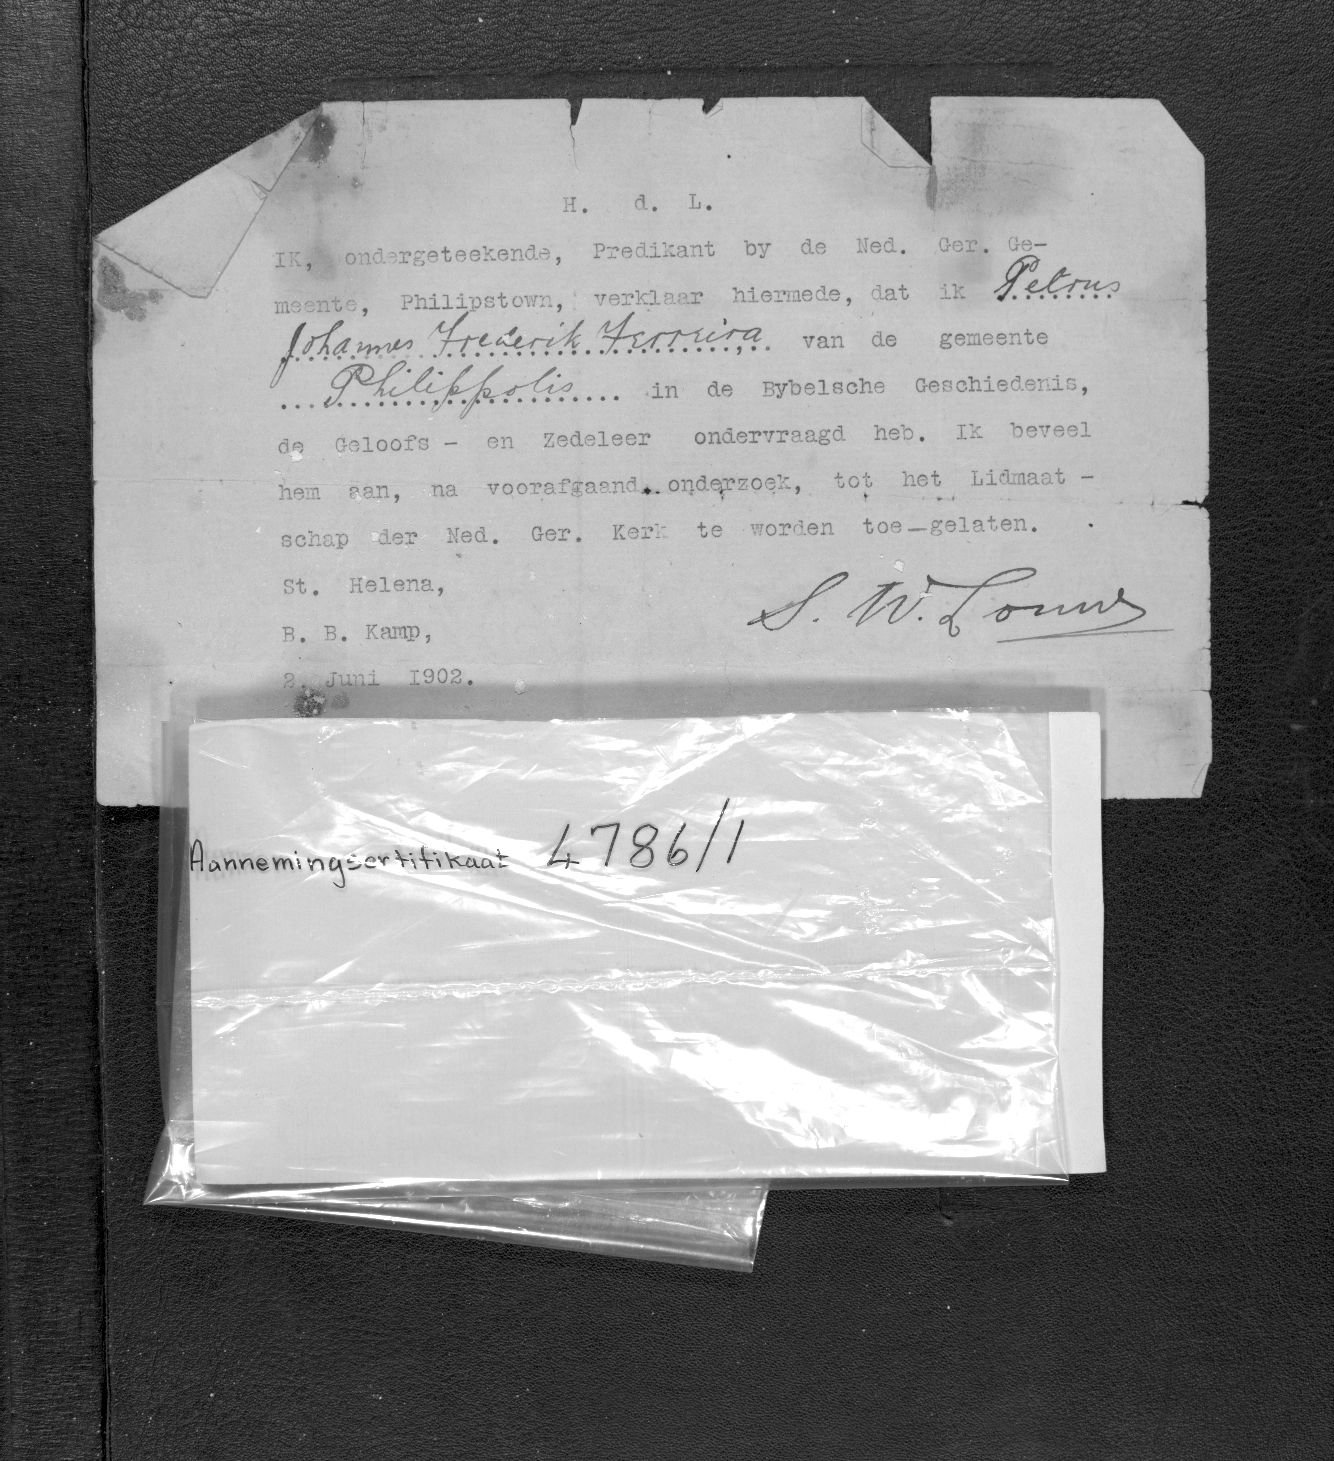 H. d. L.
IK, ondergeteekende, Predikant by de Ned. Ger. Ge-
meente, Philipstown, verklaar hiermede, dat ik Petrus
Johannes Frederik Ferreira van de gemeente
Philippolis in de Bybelsche Geschiedenis,
de Geloofs - en Zedeleer ondervraagd heb. Ik beveel
hem aan, na voorafgaand onderzoek, tot het Lidmaat -
schap der Ned. Ger. Kerk te worden toe-gelaten.
St. Helena,
S. W. Louw
B. B. Kamp,
2. Juni 1902.
Aannemingsertifikaat 4786/1